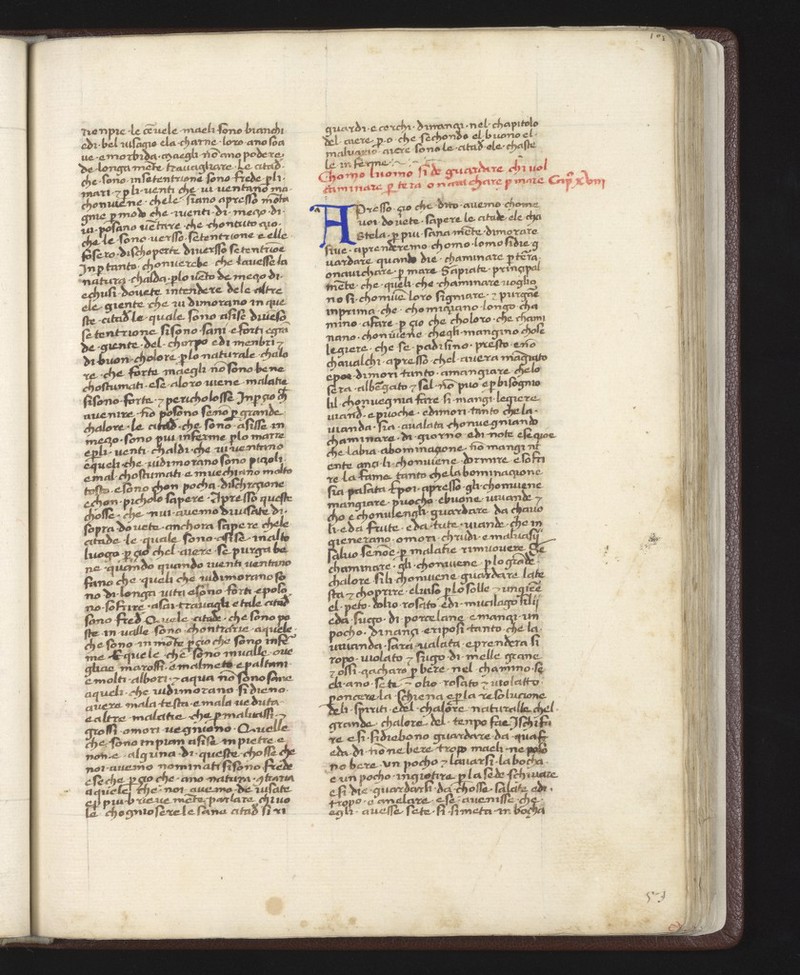 ronpre le ceruele maeli sono bianchi
edi bel uisagio ela charne loro ano soa
ue emorbida maegli nō ano podere
de longa mēte trauagliare Le citad
che sono insetentrione sono frede pli
mari ⁊ pli uenti che ui uentano ma
chonuiene chele siano apresso mōta
gnie p modo che i uenti di mezo di
ui posano uētare che chontuto zio
che le sono uersso setentrione e elle
fosero dischoperte diuersso setentrioe
Inp tanto chonuerebe che lauesse la
natura chalda plo uēto de mezo di
echusi douete intendere dele altre
ele giente che ui dimorano in que
ste citad le quale sono asise diuersō
setentrione si sono sani e forti egrā
de giente del chorpo edi menbri ⁊
di buon cholore plo naturale chalo
re che forte maegli nō sono bene
chostumati ese aloro uiene malatie
si sono forte ⁊ pericholosse Inp zo ch
auenire nō posono seno p grande
chalore le citad che sono asisse in
mezo sono piu inferme plo marre
epli uenti chaldi che ui uentano
equeli che ui dimorano sono pizoli
emal chostumati e muechiano molto
tosto esono chon pocha dischrezione
echon picholo sapere Apresso queste
chosse che nui auemo diuisate di
sopra douete anchora sapere chele
citade le quale sono assise inalto
luogo p zio chel aiere se purga be
ne quando quando uenti uentano
fano che queli che ui dimorano so
no di longa uita esono forti eposo
no sofrire asai trauagli e tale citad
sono fred Quele citade che sono po
ste in ualle sono chontrarie aquele
che sono in mōte p zio che sono infer
me E quele che sono inualle oue
aque marossi emalmete epaltani
emolti albori ⁊ aqua nō sono sane
aqueli che ui dimorano si dieno
auere mala testa emala ueduta
ealtre malatie che p maluassi ⁊
grossi omori uegniono Quelle
che sono in pian asise in pietre e
non e alquna di queste chosse che
noi auemo nominati si sono frede
ese che p zio che ano natura 9traria
aquele che noi auemo deuisate
ep piu brieue mēte parlare chi uo
le chogniosere le sane citad si ri
guardi e cerchi dinanzi nel chapitolo
del aiere p o che sechondo el buono el
maluaxio aiere sono le citad ole chaste
le inferme
Chomo luomo si de guardare chi uol
chaminare p tera o nauichare p mare Cap xviii
APresso zio che dito auemo chome
uoi douete sapere le citade ele cha
stela p piu sana mēte dimorare
siue aprenderemo chomo lomo si die g
uardare quando die chaminare p tera
onauichare p mare Sapiate prinzipal
mēte che queli che chaminare uoglio
no si chonuie loro signare ⁊ purgare
inprima che chominziano longo cha
mino afare p zio che choloro che chami
nano chonuiene chegli mangino chose
legiere che se padisino presto eno
chaualchi apresso chel auera mangiato
epoi dimori tanto amangiare chelo
sera albergato ⁊ sel nō puo e p bisognio
lil chonuegnia fare si mangi legiere
uiand e puoche edimori tanto che la
uianda sia aualata chonuegniando
chaminare di giorno edi note ese que
che labia abominazione nō mangi nī
ente anzi li chonuiene dormire esofri
re la fame tanto che la bominazione
sia pasata E poi apresso gli chonuiene
mangiare puocho ebuone uiuande ⁊
cho e chonuiengli guardare da chauo
li eda fruite eda tute uiande che in
gienerano omori chrudi e maluasii
saluo senoe p malatie rimuouere Se
chaminare gli chonuiene plo grāde
chalore sili chonuiene guardare late
sta ⁊ choprire eluiso plo solle ⁊ ungiere
el peto dolio rosato edi mucilago silii
eda sugo di porcelane emanzi un
pocho dinanzi eriposi tanto che la
uiuanda sara ualata eprendera si
ropo uiolato ⁊ sugo di melle grane
⁊ ossi zacharo p bere nel chamino se
eli ano sete ⁊ olio rosato ⁊ uiolatto
poncere la schiena ep la resoluzione
deli spiriti edel chalore naturalle chel
grande chalore del tenpo fae Ischifa
re e si si diebono guardare da quase
eda di no ne bere tropo maeli ne polo
no bere un pocho ⁊ lauarsi la bocha
e un pocho inguotire p la sede schiuare
esi die guardarsi da chosse salate edi
tropo o anelare ese auenisse che
egli auesse sete si si meta in bocha
53